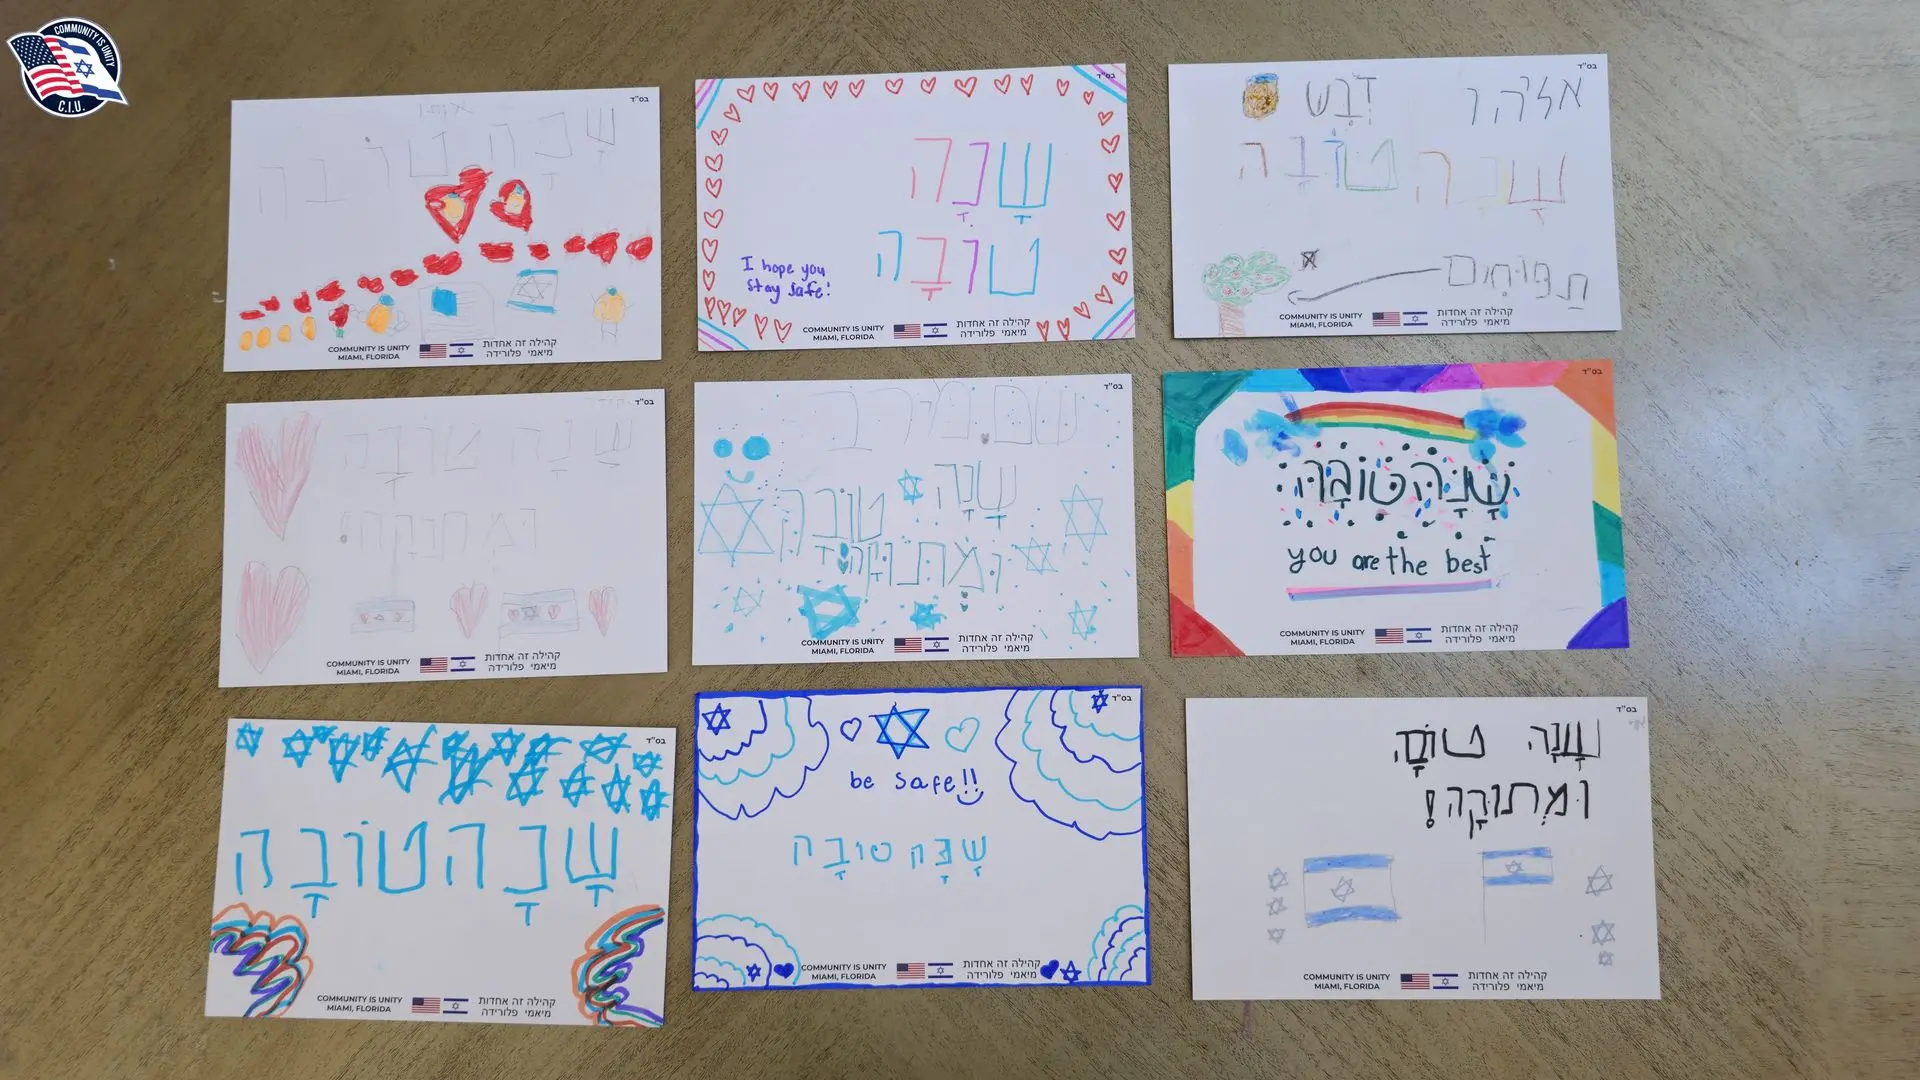 COMMUNITY IS UNITY
C.I.U.
בס"ד
שָׁנָה טוֹבָה
COMMUNITY IS UNITY
MIAMI, FLORIDA
קהילה זה אחדות
מיאמי פלורידה
בס"ד
שָׁנָה
טובָה
I hope you
stay safe!
COMMUNITY IS UNITY
MIAMI, FLORIDA
קהילה זה אחדות
מיאמי פלורידה
בס"ד
דְבַש
שָנָה טוֹבָה
תַפוּחִים
COMMUNITY IS UNITY
MIAMI, FLORIDA
קהילה זה אחדות
מיאמי פלורידה
בס"ד
שָנָה טוֹבָה
וּמְתוּקָה!
COMMUNITY IS UNITY
MIAMI, FLORIDA
קהילה זה אחדות
מיאמי פלורידה
בס"ד
שָנָה טוֹבָה
וּמְתוּקָה!
COMMUNITY IS UNITY
MIAMI, FLORIDA
קהילה זה אחדות
מיאמי פלורידה
בס"ד
שָׁנָה טוֹבָה
you are the best
COMMUNITY IS UNITY
MIAMI, FLORIDA
קהילה זה אחדות
מיאמי פלורידה
בס"ד
שָׁנָה טוֹבָה
COMMUNITY IS UNITY
MIAMI, FLORIDA
קהילה זה אחדות
מיאמי פלורידה
בס"ד
be safe!!
שָׁנָה טובָה
COMMUNITY IS UNITY
MIAMI, FLORIDA
קהילה זה אחדות
מיאמי פלורידה
בס"ד
שָׁנָה טוֹבָה
וּמְתוּקָה!
COMMUNITY IS UNITY
MIAMI, FLORIDA
קהילה זה אחדות
מיאמי פלורידה